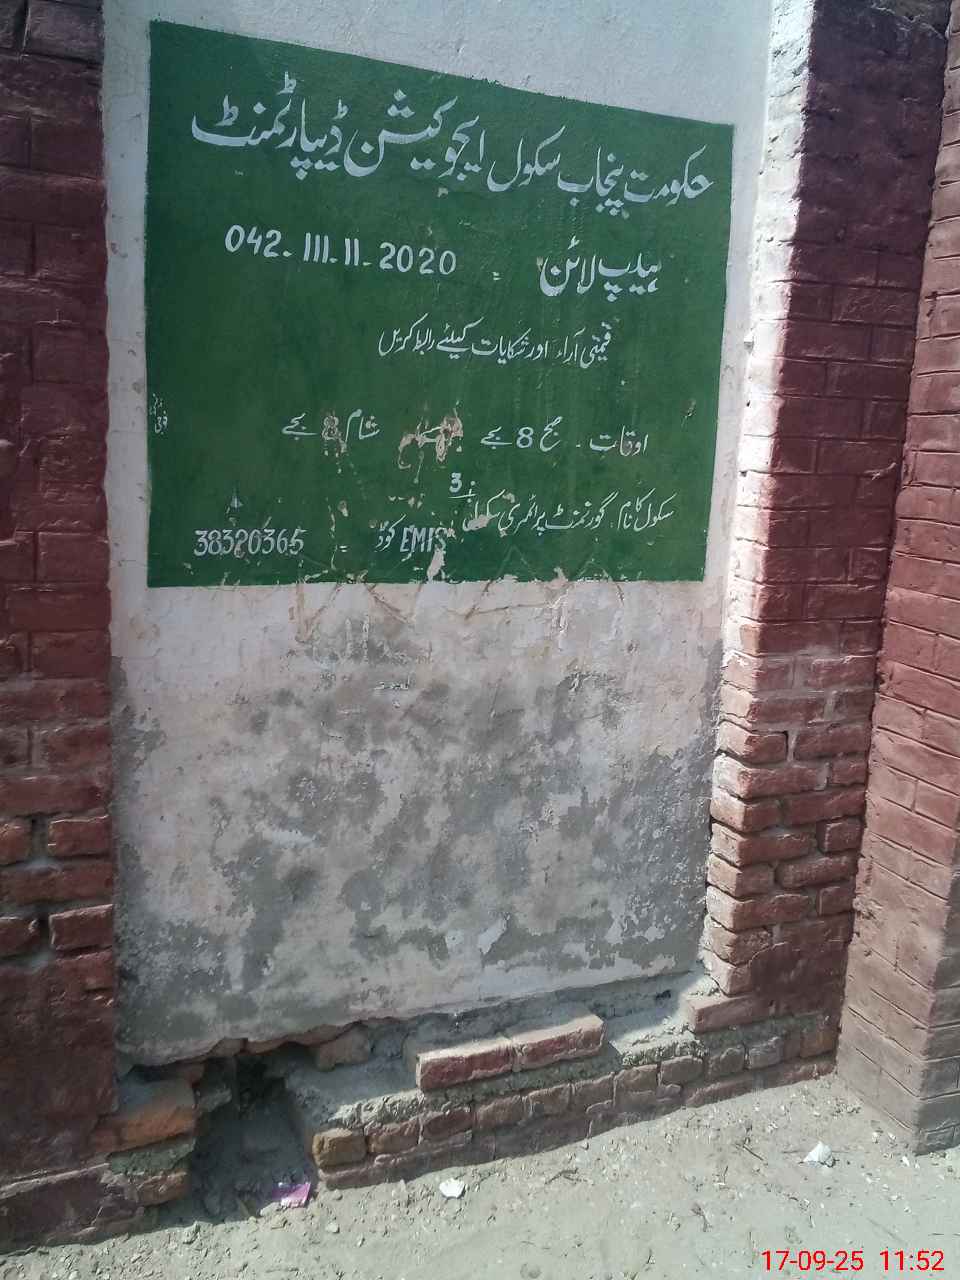 حکومت پنجاب سکول ایجوکیشن ڈیپارٹمنٹ
ہیلپ لائن = 042.111.11.2020
قیمتی آراء اور شکایات کیلئے رابطہ کریں
اوقات ۔ صبح 8 بجے شام 8 بجے
سکول کا نام گورنمنٹ پرائمری سکول نمبر 3
EMIS کوڈ = 38320365
17-09-25 11:52